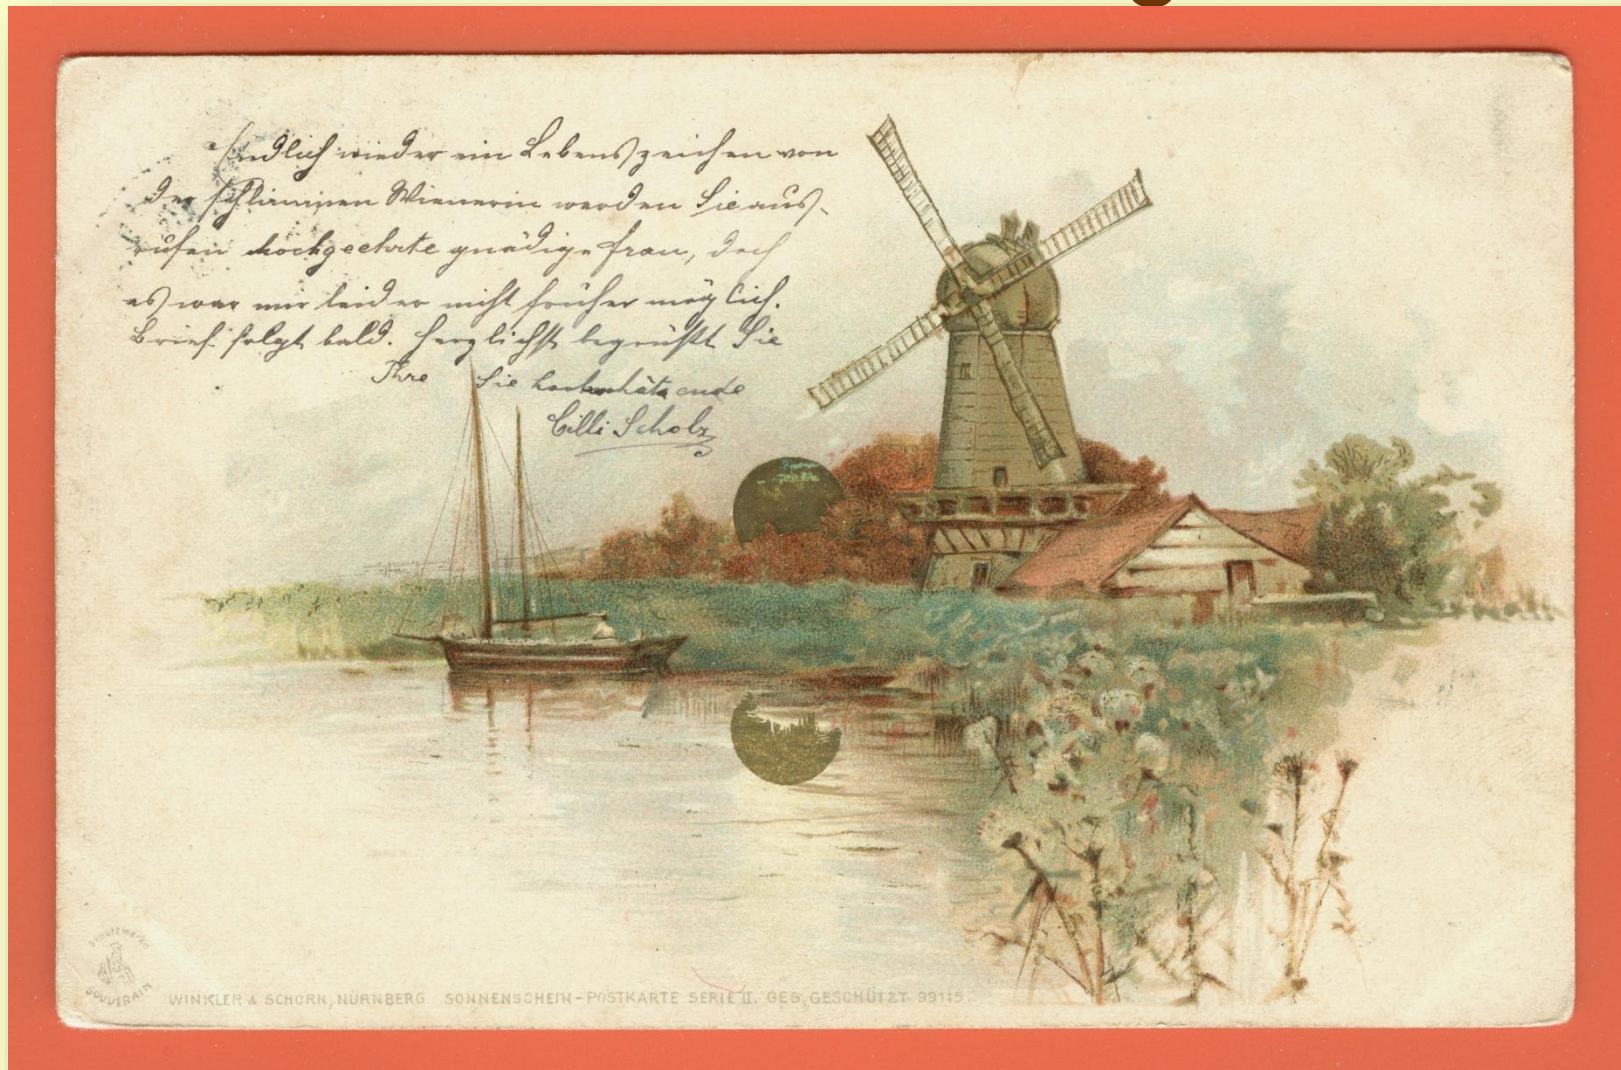 Endlich wieder ein Lebenszeichen von
der schlimmen Wienerin werden Sie aus-
rufen hochgeehrte gnädige Frau, doch
es war mir leider nicht früher möglich.
Brief folgt bald. Herzlichst begrüßt Sie
Ihre Sie
Cilli Scholz
Schutzmarke
SOUVERAIN
WINKLER & SCHORN, NÜRNBERG SONNENSCHEIN-POSTKARTE SERIE II. GES. GESCHÜTZT 99115